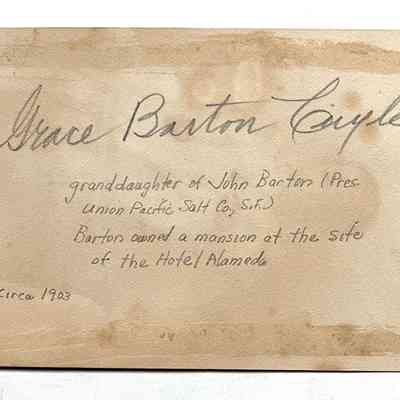 Grace Barton Coyle
granddaughter of John Barton (Pres.
Union Pacific Salt Co, S.F.)
Barton owned a mansion at the site
of the Hotel Alameda
Circa 1903